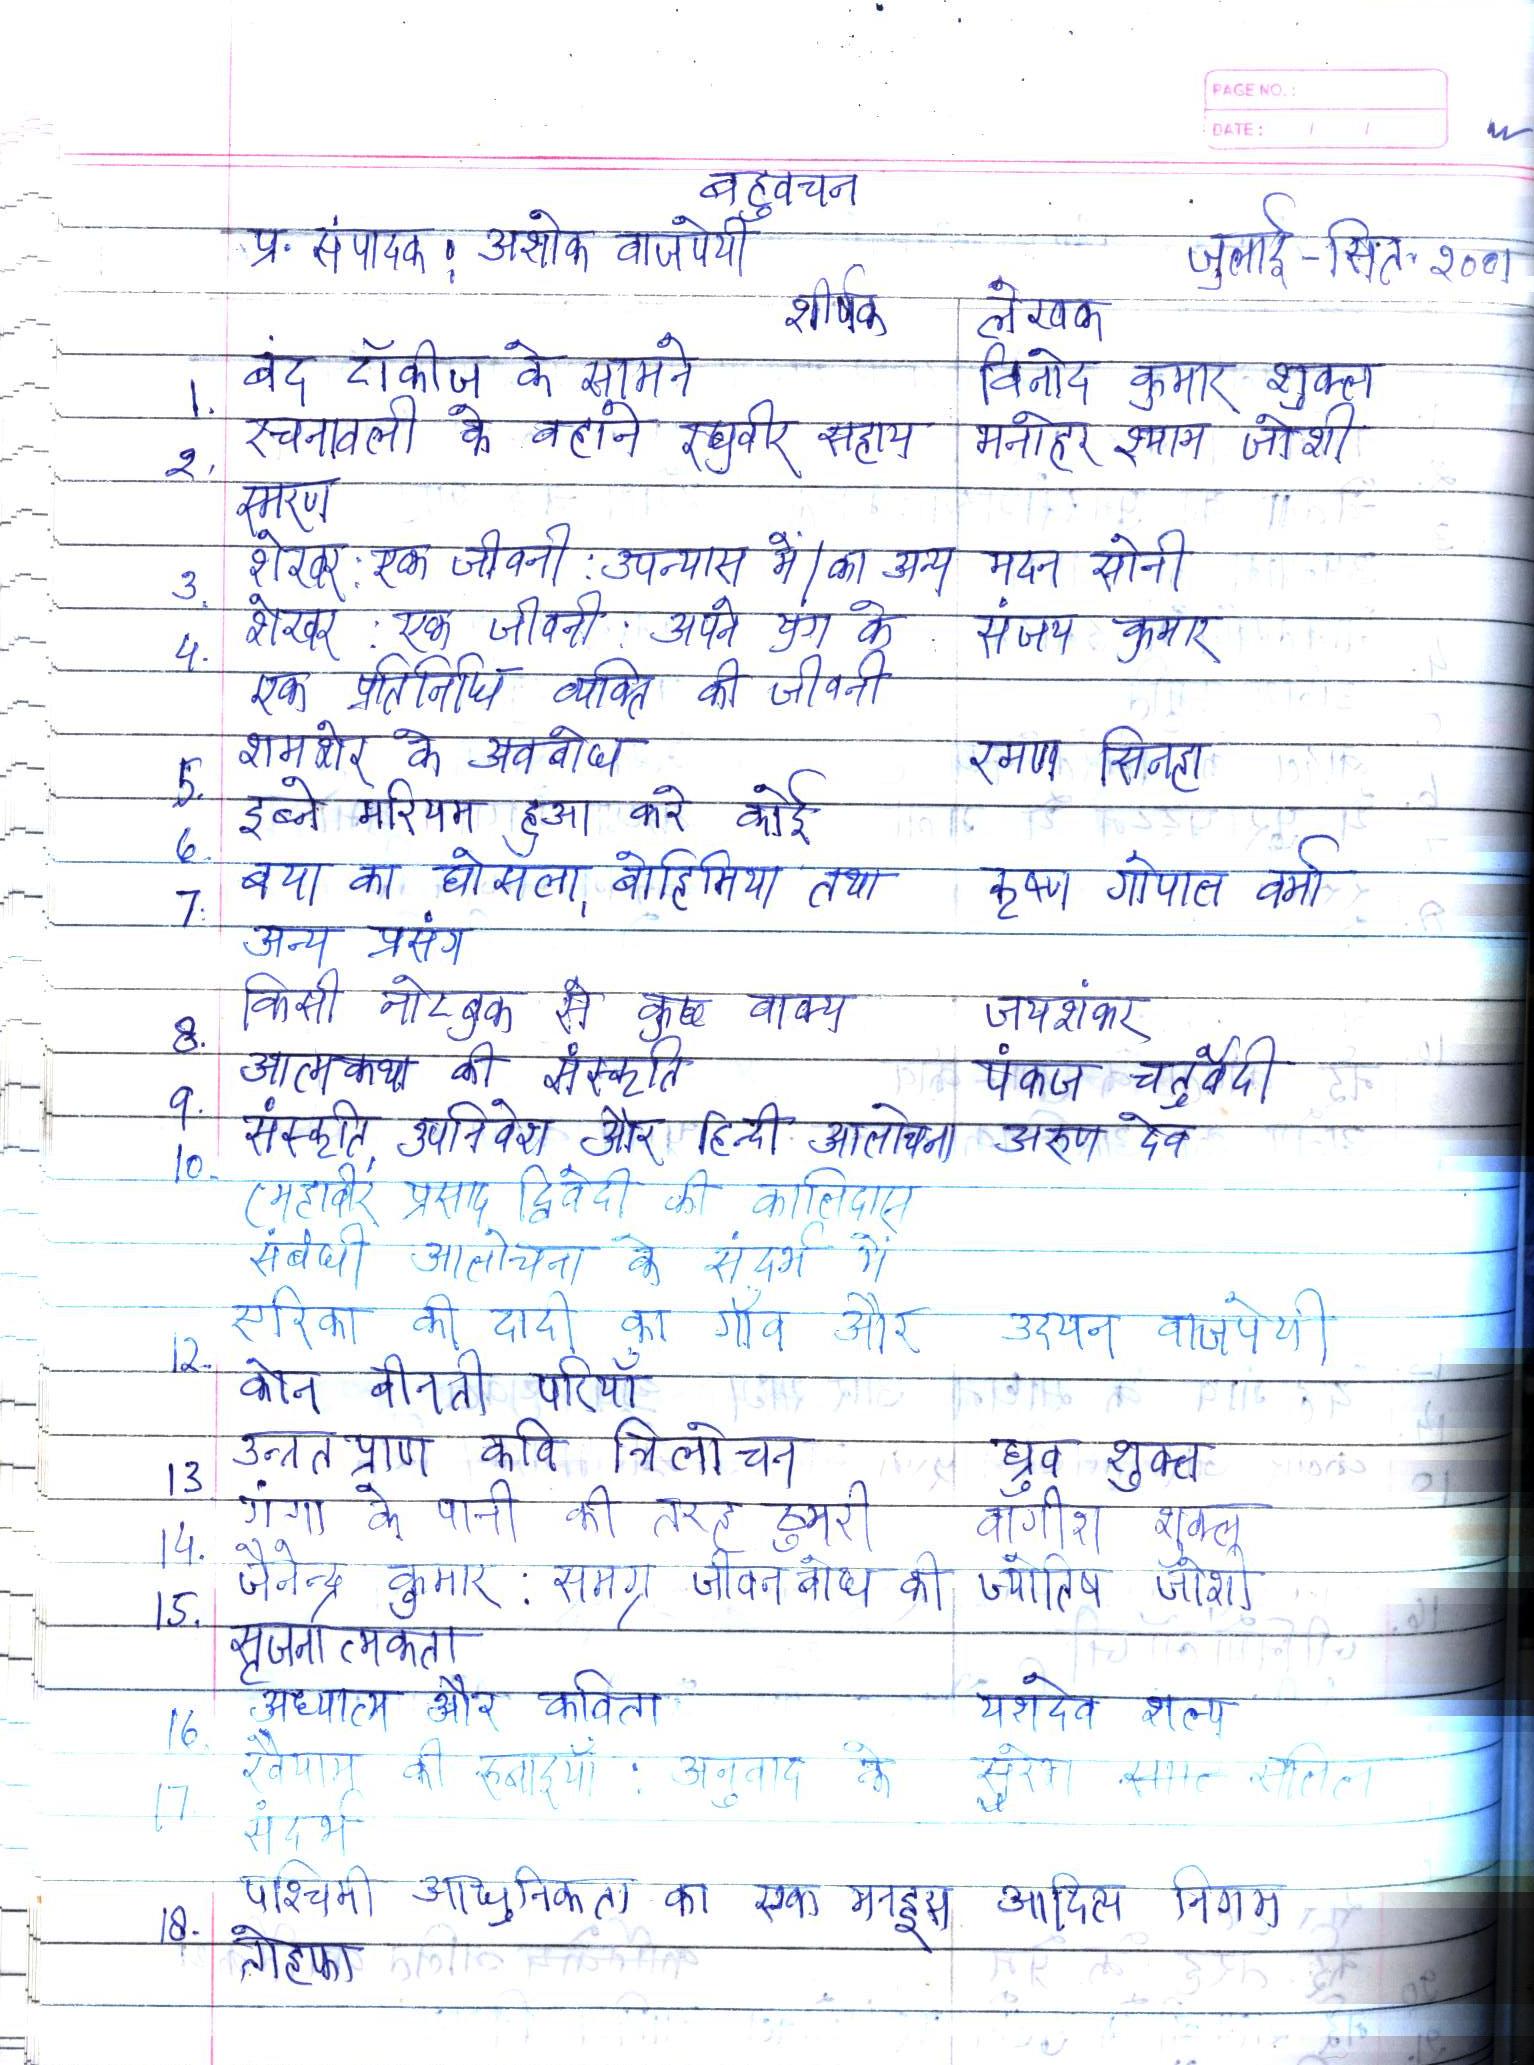 PAGE NO. :
DATE : / /
बहुवचन
प्र. संपादक : अशोक वाजपेयी जुलाई - सित. २००१
शीर्षक लेखक
1. बंद टॉकीज के सामने विनोद कुमार शुक्ल
2. रचनावली के बहाने रघुवीर सहाय मनोहर श्याम जोशी
स्मरण
3. शेखर : एक जीवनी : उपन्यास में / का अन्य मदन सोनी
4. शेखर : एक जीवनी : अपने युग के संजय कुमार
एक प्रतिनिधि व्यक्ति की जीवनी
5. शमशेर के अवबोध रमण सिनहा
6. इब्ने मरियम हुआ करे कोई
7. बया का घोसला, बोहिमिया तथा कृष्ण गोपाल वर्मा
अन्य प्रसंग
8. किसी नोटबुक से कुछ वाक्य जयशंकर
9. आत्मकथा की संस्कृति पंकज चतुर्वेदी
10. संस्कृति, उपनिवेश और हिन्दी आलोचना अरुण देव
(महावीर प्रसाद द्विवेदी की कालिदास
संबंधी आलोचना के संदर्भ में
12. एरिका की दादी का गाँव और उदयन वाजपेयी
कोन बीनती परियाँ
13 उन्नतप्राण कवि त्रिलोचन ध्रुव शुक्ल
14. गंगा के पानी की तरह ठुमरी वागीश शुक्ल
15. जैनेन्द्र कुमार : समग्र जीवनबोध की ज्योतिष जोशी
सृजनात्मकता
16. अध्यात्म और कविता यशदेव शल्य
17 खैयाम की रुबाइयाँ : अनुवाद के सुरेश सलिल
संदर्भ
18. पश्चिमी आधुनिकता का एक मनहूस आदित्य निगम
तोहफा